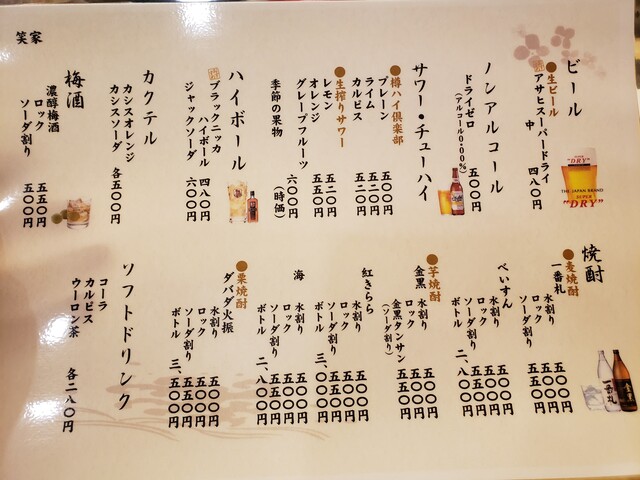 笑家
ビール
●生ビール
アサヒスーパードライ
中 四八〇円
ノンアルコール
ドライゼロ
(アルコール0.00%)
五〇〇円
サワー・チューハイ
●樽ハイ倶楽部
プレーン 五〇〇円
ライム 五二〇円
カルピス 五二〇円
●生搾りサワー
レモン 五二〇円
オレンジ 五五〇円
グレープフルーツ 六〇〇円
季節の果物 (時価)
ハイボール
ブラックニッカ
ハイボール 四八〇円
ジャックソーダ 六〇〇円
カクテル
カシスオレンジ
カシスソーダ
各五〇〇円
梅酒
濃醇梅酒
ロック 五五〇円
ソーダ割り 五〇〇円
焼酎
●麦焼酎
一番札
水割り 五〇〇円
ロック 五〇〇円
ソーダ割り 五五〇円
べいすん
水割り 五〇〇円
ロック 五〇〇円
ソーダ割り 五五〇円
ボトル 二、八〇〇円
●芋焼酎
金黒
水割り 五〇〇円
ロック 五〇〇円
金黒タンサン
(ソーダ割り)
五五〇円
紅きらら
水割り 五五〇円
ロック 五五〇円
ソーダ割り 五五〇円
ボトル 三、〇〇〇円
海
水割り 五〇〇円
ロック 五〇〇円
ソーダ割り 五五〇円
ボトル 二、八〇〇円
●栗焼酎
ダバダ火振
水割り 五五〇円
ロック 五五〇円
ソーダ割り 五五〇円
ボトル 三、五〇〇円
ソフトドリンク
コーラ
カルピス
ウーロン茶
各二八〇円
"DRY"
THE JAPAN BRAND
"DRY"